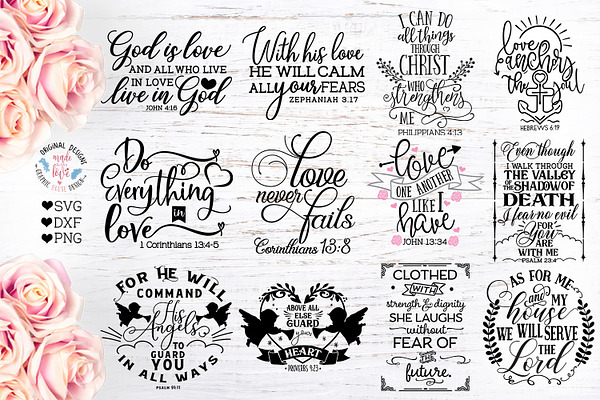 God is love
AND ALL WHO LIVE
IN LOVE
live in God
JOHN 4:16
With his love
HE WILL CALM
ALL your FEARS
ZEPHANIAH 3.17
I CAN DO
all things
THROUGH
CHRIST
WHO strengthens
ME
PHILIPPIANS 4:13
love
anchors
the soul
HEBREWS 6:19
ORIGINAL DESIGNS
made with
love
SVG
DXF
PNG
Do
everything
IN
love
1 Corinthians 13:4-5
love
never
fails
Corinthians 13:8
love
ONE ANOTHER
LIKE I
have
JOHN 13:34
Even though
I WALK THROUGH
THE VALLEY
OF THE SHADOW OF
DEATH
I fear no evil
FOR
You
ARE
WITH ME
PSALM 23:4
FOR HE WILL
COMMAND
His
Angels
TO
GUARD
YOU
IN ALL WAYS
PSALM 91:11
ABOVE ALL
ELSE GUARD
your
HEART
PROVERBS 4:23
CLOTHED
WITH
strength & dignity
SHE LAUGHS
without
FEAR OF
THE
future.
AS FOR ME
and MY
house
WE WILL SERVE
THE
Lord